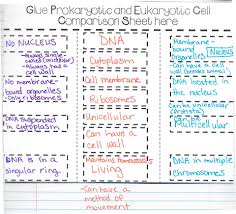 Glue Prokaryotic and Eukaryotic Cell
Comparison Sheet here
No NUCLEUS
Always single
celled (unicellular)
Always had a
cell wall
No membrane
bound organelles
Only ribosomes
DNA suspended
in cytoplasm
DNA is in a
singular ring.
DNA
Cytoplasm
Cell membrane
Ribosomes
Unicellular
Can have a
cell wall
Maintains homeostasis
Living
-Can have a
method of
movement
Membrane
bound
organelles
Nucleus
Can have a cell
wall
DNA located in the
nucleus
Can be unicellular
Multicellular
DNA in multiple
chromosomes